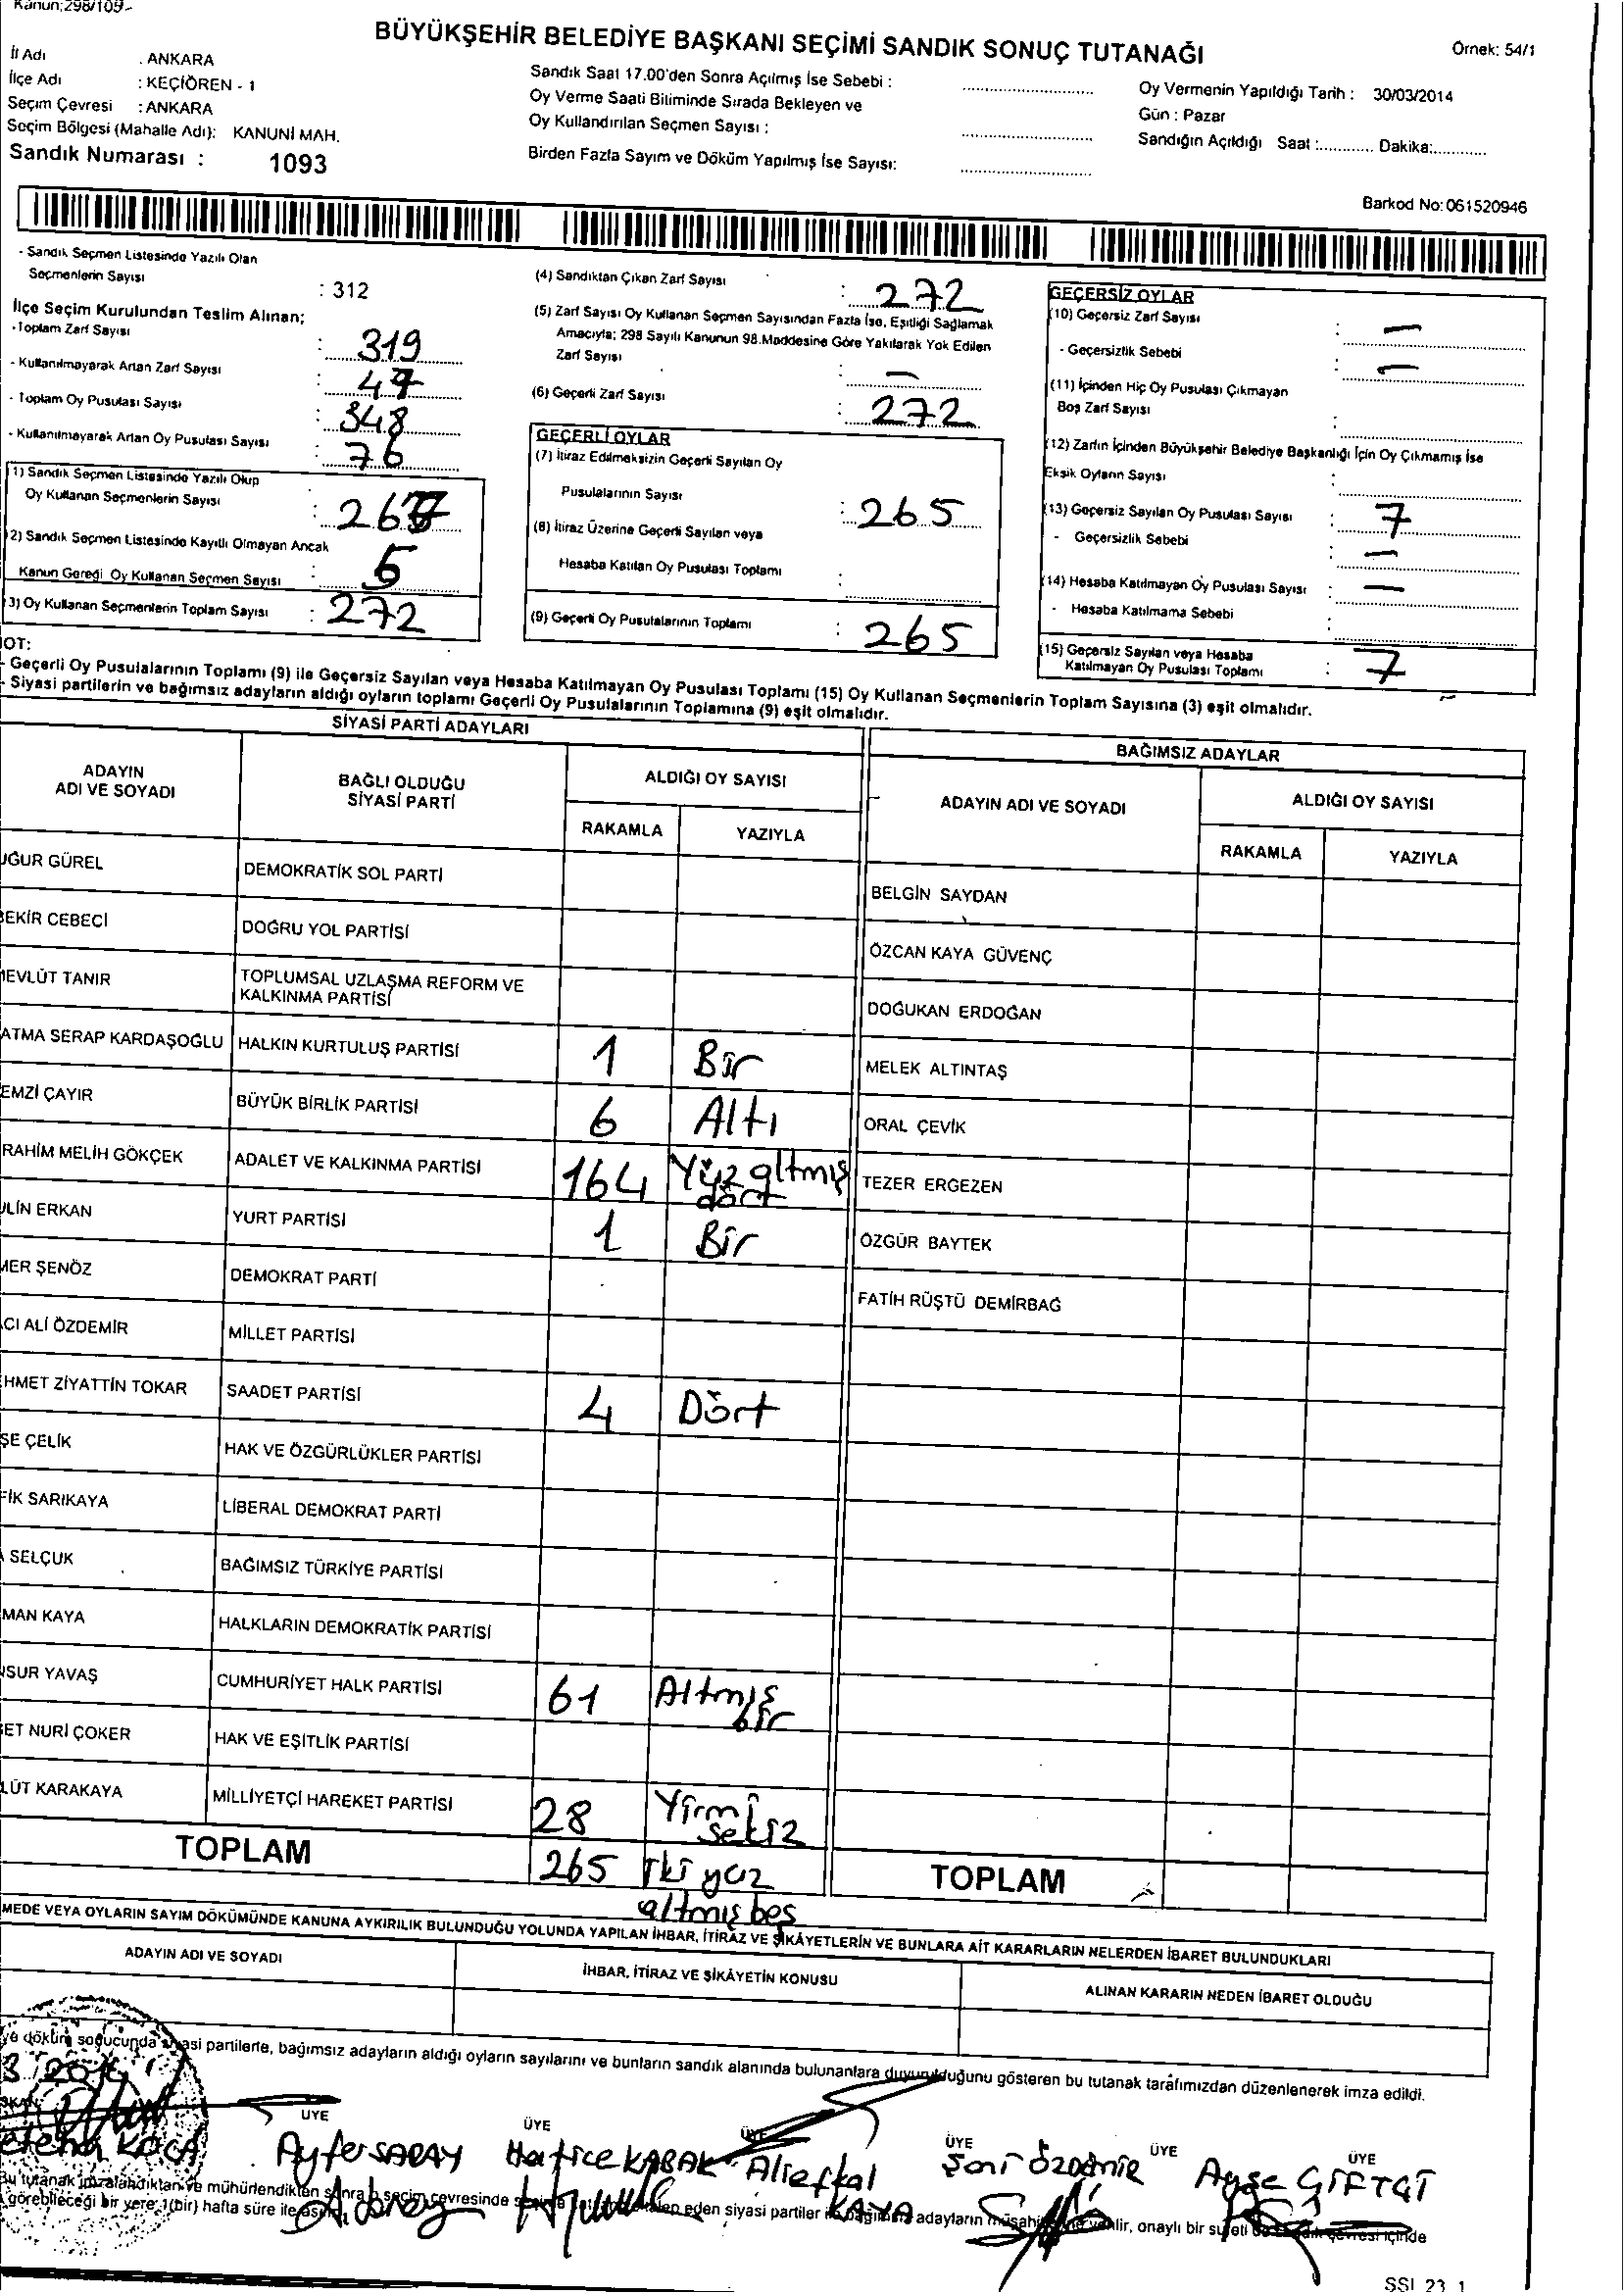 Kanun;298/109-
BÜYÜKŞEHİR BELEDİYE BAŞKANI SEÇİMİ SANDIK SONUÇ TUTANAĞI
Örnek: 54/1
İl Adı : ANKARA
İlçe Adı : KEÇİÖREN - 1
Seçim Çevresi : ANKARA
Seçim Bölgesi (Mahalle Adı): KANUNİ MAH.
Sandık Numarası : 1093
Sandık Saat 17.00'den Sonra Açılmış İse Sebebi :
Oy Verme Saati Bitiminde Sırada Bekleyen ve
Oy Kullandırılan Seçmen Sayısı :
Birden Fazla Sayım ve Döküm Yapılmış İse Sayısı:
Oy Vermenin Yapıldığı Tarih : 30/03/2014
Gün : Pazar
Sandığın Açıldığı Saat :............ Dakika:............
Barkod No: 061520946
- Sandık Seçmen Listesinde Yazılı Olan
Seçmenlerin Sayısı : 312
İlçe Seçim Kurulundan Teslim Alınan;
- Toplam Zarf Sayısı : 319
- Kullanılmayarak Artan Zarf Sayısı : 47
- Toplam Oy Pusulası Sayısı : 348
- Kullanılmayarak Artan Oy Pusulası Sayısı : 76
(1) Sandık Seçmen Listesinde Yazılı Olup
Oy Kullanan Seçmenlerin Sayısı : 267
2) Sandık Seçmen Listesinde Kayıtlı Olmayan Ancak
Kanun Gereği Oy Kullanan Seçmen Sayısı : 5
3) Oy Kullanan Seçmenlerin Toplam Sayısı : 272
(4) Sandıktan Çıkan Zarf Sayısı : 272
(5) Zarf Sayısı Oy Kullanan Seçmen Sayısından Fazla İse, Eşitliği Sağlamak
Amacıyla; 298 Sayılı Kanunun 98.Maddesine Göre Yakılarak Yok Edilen
Zarf Sayısı : —
(6) Geçerli Zarf Sayısı : 272
GEÇERLİ OYLAR
(7) İtiraz Edilmeksizin Geçerli Sayılan Oy
Pusulalarının Sayısı : 265
(8) İtiraz Üzerine Geçerli Sayılan veya
Hesaba Katılan Oy Pusulası Toplamı :
(9) Geçerli Oy Pusulalarının Toplamı : 265
GEÇERSİZ OYLAR
(10) Geçersiz Zarf Sayısı : —
- Geçersizlik Sebebi : —
(11) İçinden Hiç Oy Pusulası Çıkmayan
Boş Zarf Sayısı :
(12) Zarfın İçinden Büyükşehir Belediye Başkanlığı İçin Oy Çıkmamış İse
Eksik Oyların Sayısı :
(13) Geçersiz Sayılan Oy Pusulası Sayısı : 7
- Geçersizlik Sebebi : —
(14) Hesaba Katılmayan Oy Pusulası Sayısı : —
- Hesaba Katılmama Sebebi :
(15) Geçersiz Sayılan veya Hesaba
Katılmayan Oy Pusulası Toplamı : 7
OT:
- Geçerli Oy Pusulalarının Toplamı (9) ile Geçersiz Sayılan veya Hesaba Katılmayan Oy Pusulası Toplamı (15) Oy Kullanan Seçmenlerin Toplam Sayısına (3) eşit olmalıdır.
- Siyasi partilerin ve bağımsız adayların aldığı oyların toplamı Geçerli Oy Pusulalarının Toplamına (9) eşit olmalıdır.
SİYASİ PARTİ ADAYLARI
ADAYIN ADI VE SOYADI
BAĞLI OLDUĞU SİYASİ PARTİ
ALDIĞI OY SAYISI
RAKAMLA YAZIYLA
UĞUR GÜREL DEMOKRATİK SOL PARTİ
BEKİR CEBECİ DOĞRU YOL PARTİSİ
MEVLÜT TANIR TOPLUMSAL UZLAŞMA REFORM VE KALKINMA PARTİSİ
ATMA SERAP KARDAŞOĞLU HALKIN KURTULUŞ PARTİSİ 1 Bir
EMZİ ÇAYIR BÜYÜK BİRLİK PARTİSİ 6 Altı
RAHİM MELİH GÖKÇEK ADALET VE KALKINMA PARTİSİ 164 Yüz altmış dört
LİN ERKAN YURT PARTİSİ 1 Bir
MER ŞENÖZ DEMOKRAT PARTİ
CI ALİ ÖZDEMİR MİLLET PARTİSİ
HMET ZİYATTİN TOKAR SAADET PARTİSİ 4 Dört
ŞE ÇELİK HAK VE ÖZGÜRLÜKLER PARTİSİ
FİK SARIKAYA LİBERAL DEMOKRAT PARTİ
SELÇUK BAĞIMSIZ TÜRKİYE PARTİSİ
MAN KAYA HALKLARIN DEMOKRATİK PARTİSİ
SUR YAVAŞ CUMHURİYET HALK PARTİSİ 61 Altmış bir
ET NURİ ÇOKER HAK VE EŞİTLİK PARTİSİ
LÜT KARAKAYA MİLLİYETÇİ HAREKET PARTİSİ 28 Yirmi sekiz
TOPLAM 265 iki yüz altmış beş
BAĞIMSIZ ADAYLAR
ADAYIN ADI VE SOYADI
ALDIĞI OY SAYISI
RAKAMLA YAZIYLA
BELGİN SAYDAN
ÖZCAN KAYA GÜVENÇ
DOĞUKAN ERDOĞAN
MELEK ALTINTAŞ
ORAL ÇEVİK
TEZER ERGEZEN
ÖZGÜR BAYTEK
FATİH RÜŞTÜ DEMİRBAĞ
TOPLAM
MEDE VEYA OYLARIN SAYIM DÖKÜMÜNDE KANUNA AYKIRILIK BULUNDUĞU YOLUNDA YAPILAN İHBAR, İTİRAZ VE ŞİKÂYETLERİN VE BUNLARA AİT KARARLARIN NELERDEN İBARET BULUNDUKLARI
ADAYIN ADI VE SOYADI
İHBAR, İTİRAZ VE ŞİKÂYETİN KONUSU
ALINAN KARARIN NEDEN İBARET OLDUĞU
ve döküm sonucunda siyasi partilerle, bağımsız adayların aldığı oyların sayılarını ve bunların sandık alanında bulunanlara duyurulduğunu gösteren bu tutanak tarafımızdan düzenlenerek imza edildi.
ÜYE ÜYE ÜYE ÜYE ÜYE ÜYE
KOCA Ayfer SARAY Hatice KABAK Ali KAYA ÖZDEMİR Ayşe ÇİFTÇİ
Bu tutanak imzalandıktan ve mühürlendikten sonra seçim çevresinde eden siyasi partiler bağımsız adayların verilir, onaylı bir sureti içinde
görebileceği bir yere 1(bir) hafta süre ile
SSI 23 1